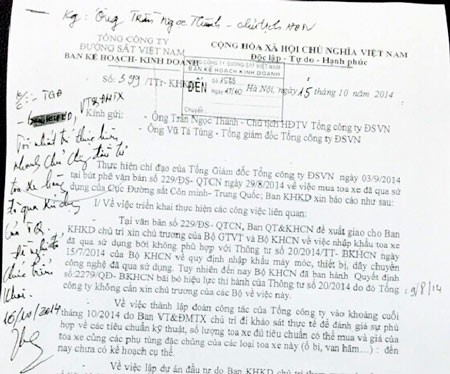 Kg: Ông Trần Ngọc Thành - chủ tịch HĐTV
TỔNG CÔNG TY
ĐƯỜNG SẮT VIỆT NAM
BAN KẾ HOẠCH- KINH DOANH
Số: 599 /TTr- KHKD
CỘNG HÒA XÃ HỘI CHỦ NGHĨA VIỆT NAM
Độc lập - Tự do - Hạnh phúc
Hà Nội, ngày 15 tháng 10 năm 2014
TỔNG CÔNG TY ĐƯỜNG SẮT VIỆT NAM
BAN KẾ HOẠCH KINH DOANH
ĐẾN
Chuyển:
Kính gửi: - Ông Trần Ngọc Thành - Chủ tịch HĐTV Tổng công ty ĐSVN
- Ông Vũ Tá Tùng - Tổng giám đốc Tổng công ty ĐSVN
Thực hiện chỉ đạo của Tổng Giám đốc Tổng công ty ĐSVN ngày 03/9/2014
tại bút phê văn bản số 229/ĐS- QTCN ngày 29/8/2014 về việc mua toa xe đã qua sử
dụng của Cục Đường sắt Côn minh- Trung Quốc; Ban KHKD xin báo cáo như sau:
1/ Về việc triển khai thực hiện các công việc liên quan:
Tại văn bản số 229/ĐS- QTCN, Ban QT&KHCN đề xuất giao cho Ban
KHKD chủ trì xin chủ trương của Bộ GTVT và Bộ KHCN về việc nhập khẩu toa xe
đã qua sử dụng bởi không phù hợp với Thông tư số 20/2014/TT- BKHCN ngày
15/7/2014 của Bộ KHCN về quy định nhập khẩu máy móc, thiết bị, dây chuyền
công nghệ đã qua sử dụng. Tuy nhiên đến nay Bộ KHCN đã ban hành Quyết định
số:2279/QĐ- BKHCN bãi bỏ hiệu lực thi hành của Thông tư số 20/2014 do đó Tổng
công ty không cần xin chủ trương của các Bộ về việc này.
9/8/14
Về việc thành lập đoàn công tác của Tổng công ty vào khoảng cuối
tháng 10/2014 do Ban VT&ĐMTX chủ trì đi khảo sát thực tế để đánh giá sự phù
hợp về các tiêu chuẩn kỹ thuật, số lượng toa xe đủ tiêu chuẩn có thể mua và giá của
toa xe cũng các phụ tùng đặc chủng của các loại toa xe này (ổ bi, van hãm…) : đến
nay chưa có kế hoạch cụ thể.
Về việc lập dự án đầu tư do Ban KHKD
- TGĐ
VT&ĐMTX
toa xe hàng
của TQ.
16/10/2014